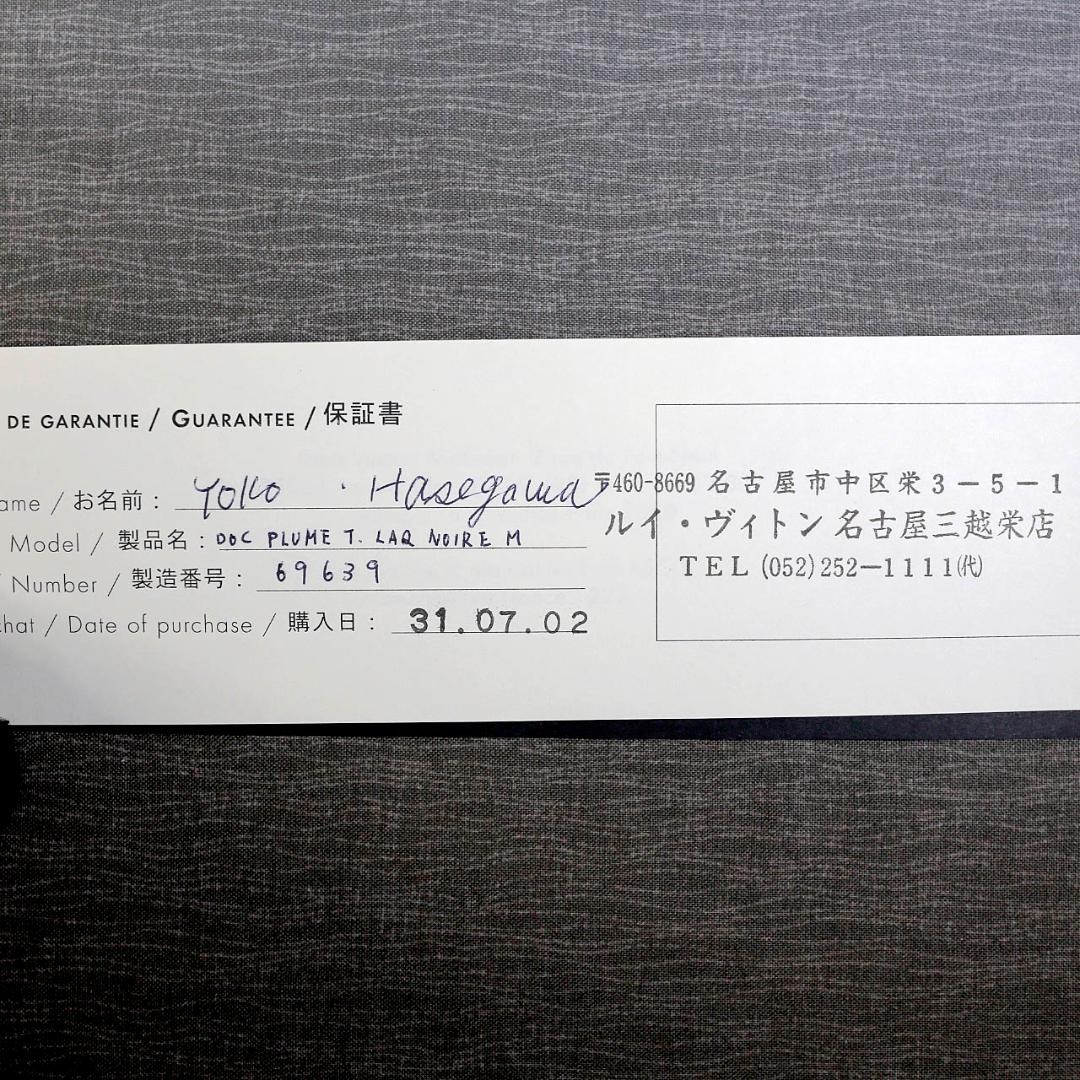 DE GARANTIE / GUARANTEE / 保証書
ame / お名前 : Yoko . Hasegawa
Model / 製品名 : DOC PLUME T. LAQ NOIRE M
Number / 製造番号 : 69639
hat / Date of purchase / 購入日 : 31.07.02
〒460-8669 名古屋市中区栄3-5-1
ルイ・ヴィトン 名古屋三越栄店
TEL (052)252-1111㈹